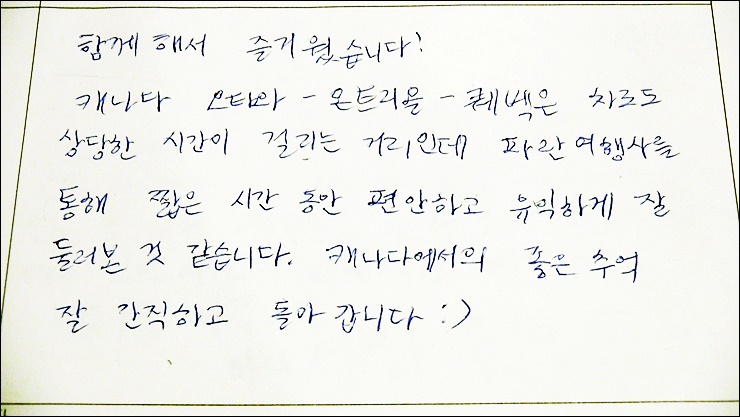 함께해서 즐거웠습니다!
캐나다 오타와 - 몬트리올 - 퀘벡은 차로도
상당한 시간이 걸리는 거리인데 파란여행사를
통해 짧은 시간 동안 편안하고 유익하게 잘
둘러본 것 같습니다. 캐나다에서의 좋은 추억
잘 간직하고 돌아갑니다 :)